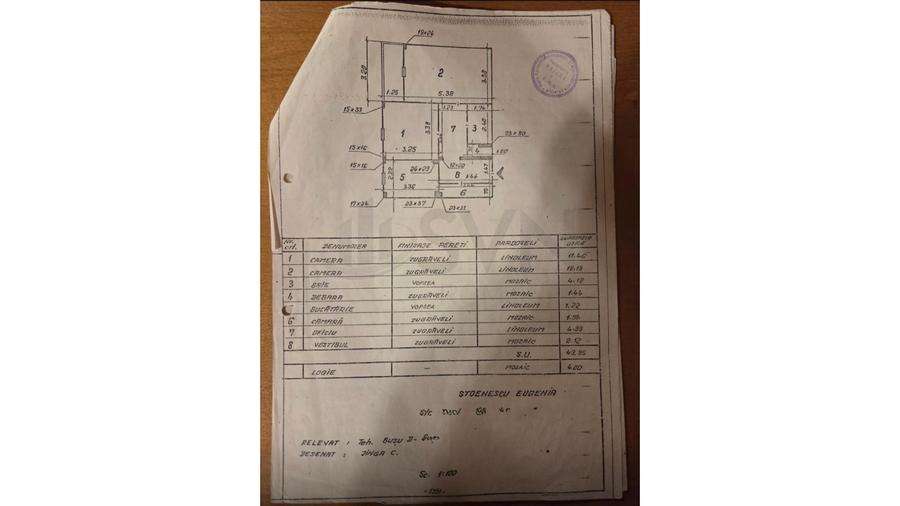 19×26
3.20
2
3.30
1.25 5.38
15×33
1.23 1.74
1
3.38
7
3
2.40
23×30
3.25
4
1.20
15×16
15×16
26×29
10×20
2.20
5
8
1.44
1.47
3.36
6
70
17×24
23×37
23×31
SVN
Nr. crt. DENUMIREA FINISAJE PERETI PARDOSELI SUPRAFATA UTILA
1 CAMERA ZUGRĂVELI LINOLEUM 11.46
2 CAMERA ZUGRĂVELI LINOLEUM
3 BAIE VOPSEA MOZAIC 4.12
4 DEBARA ZUGRĂVELI MOZAIC 1.44
BUCĂTĂRIE VOPSEA LINOLEUM
6 CĂMARĂ ZUGRĂVELI MOZAIC
7 OFICIU ZUGRĂVELI LINOLEUM
8 VESTIBUL ZUGRĂVELI MOZAIC 2.12
S.U. 43.95
LOGIE — MOZAIC 4.00
STOENESCU EUGENIA
RELEVAT : Teh. BUȘU D-
DESENAT : JINGA C.
Sc. 1:100